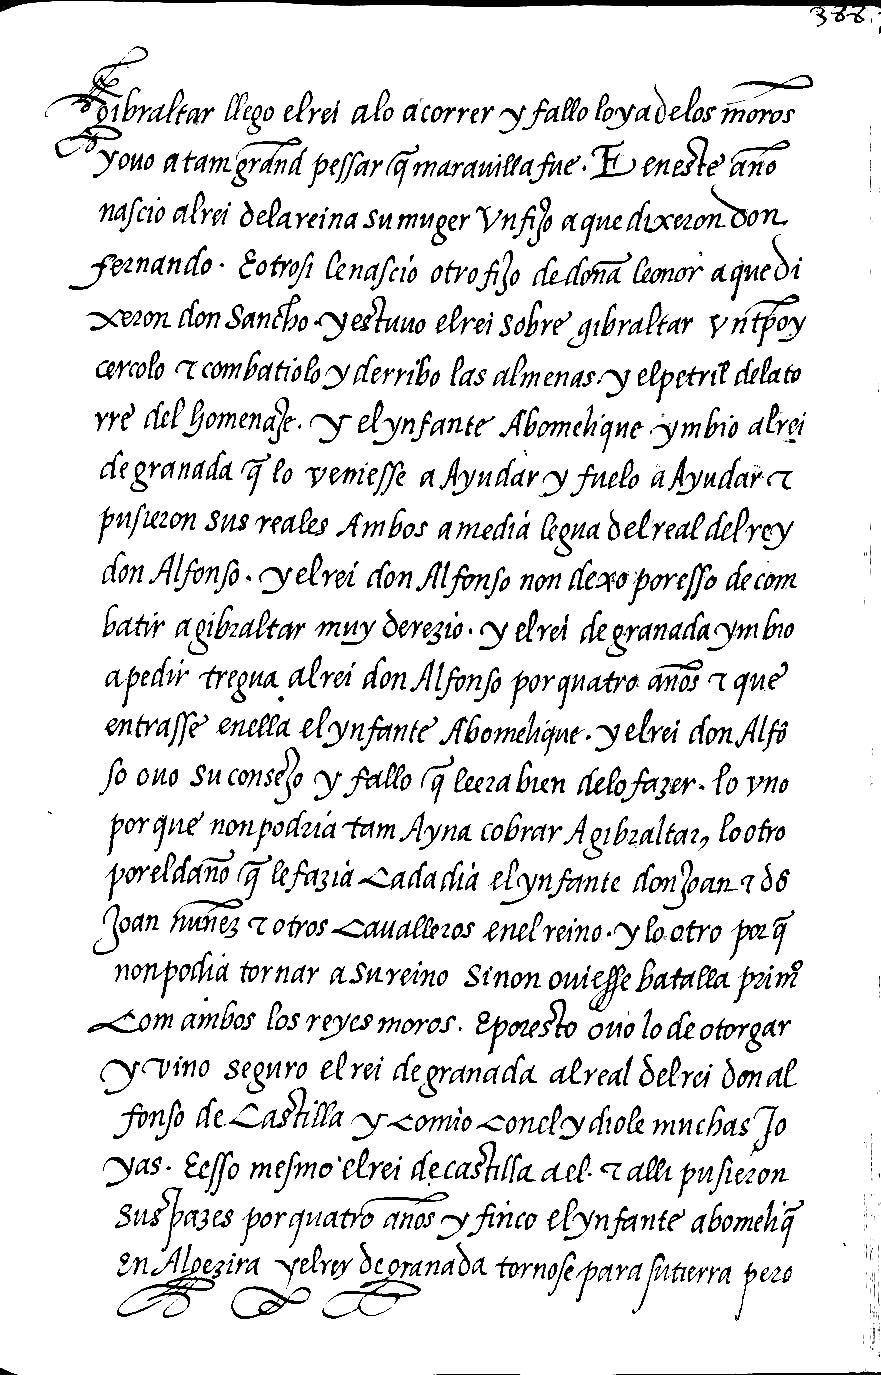 388.
gibraltar llego el rei a lo acorrer y fallo lo ya de los moros
y ouo a tam grand pessar q̃ marauilla fue. E en este año
nascio al rei de la reina su muger vn fijo a que dixeron don
fernando. E otrosi le nascio otro fijo de doña leonor a que di
xeron don Sancho. y estuuo el rei sobre gibraltar vn tpõ y
cercolo τ combatiolo y derribo las almenas. y el petril de la to
rre del homenaje. y el ynfante Abomelique ymbio al rei
de granada q̃ lo veniesse a Ayudar y fuelo a Ayudar τ
pusieron sus reales Ambos a media legua del real del rey
don Alfonso. y el rei don Alfonso non dexo por esso de com
batir a gibraltar muy derezio. y el rei de granada ymbio
a pedir tregua al rei don Alfonso por quatro años τ que
entrasse en ella el ynfante Abomelique. y el rei don Alfõ
so ouo su consejo y fallo q̃ le era bien de lo fazer. lo vno
por que non podria tam Ayna cobrar A gibraltar, lo otro
por el daño q̃ le fazia Cada dia el ynfante don Joan τ dõ
Joan nuñez τ otros Caualleros en el reino. y lo otro por q̃
non podia tornar a su reino si non ouiesse batalla primº
Com ambos los reyes moros. E por esto ouo lo de otorgar
y vino seguro el rei de granada al real del rei don al
fonso de Castilla y Comio Con el y diole muchas Jo
yas. E esso mesmo el rei de castilla a el. τ alli pusieron
sus pazes por quatro años y finco el ynfante abomeliq̃
En Algezira y el rey de granada tornose para su tierra pero